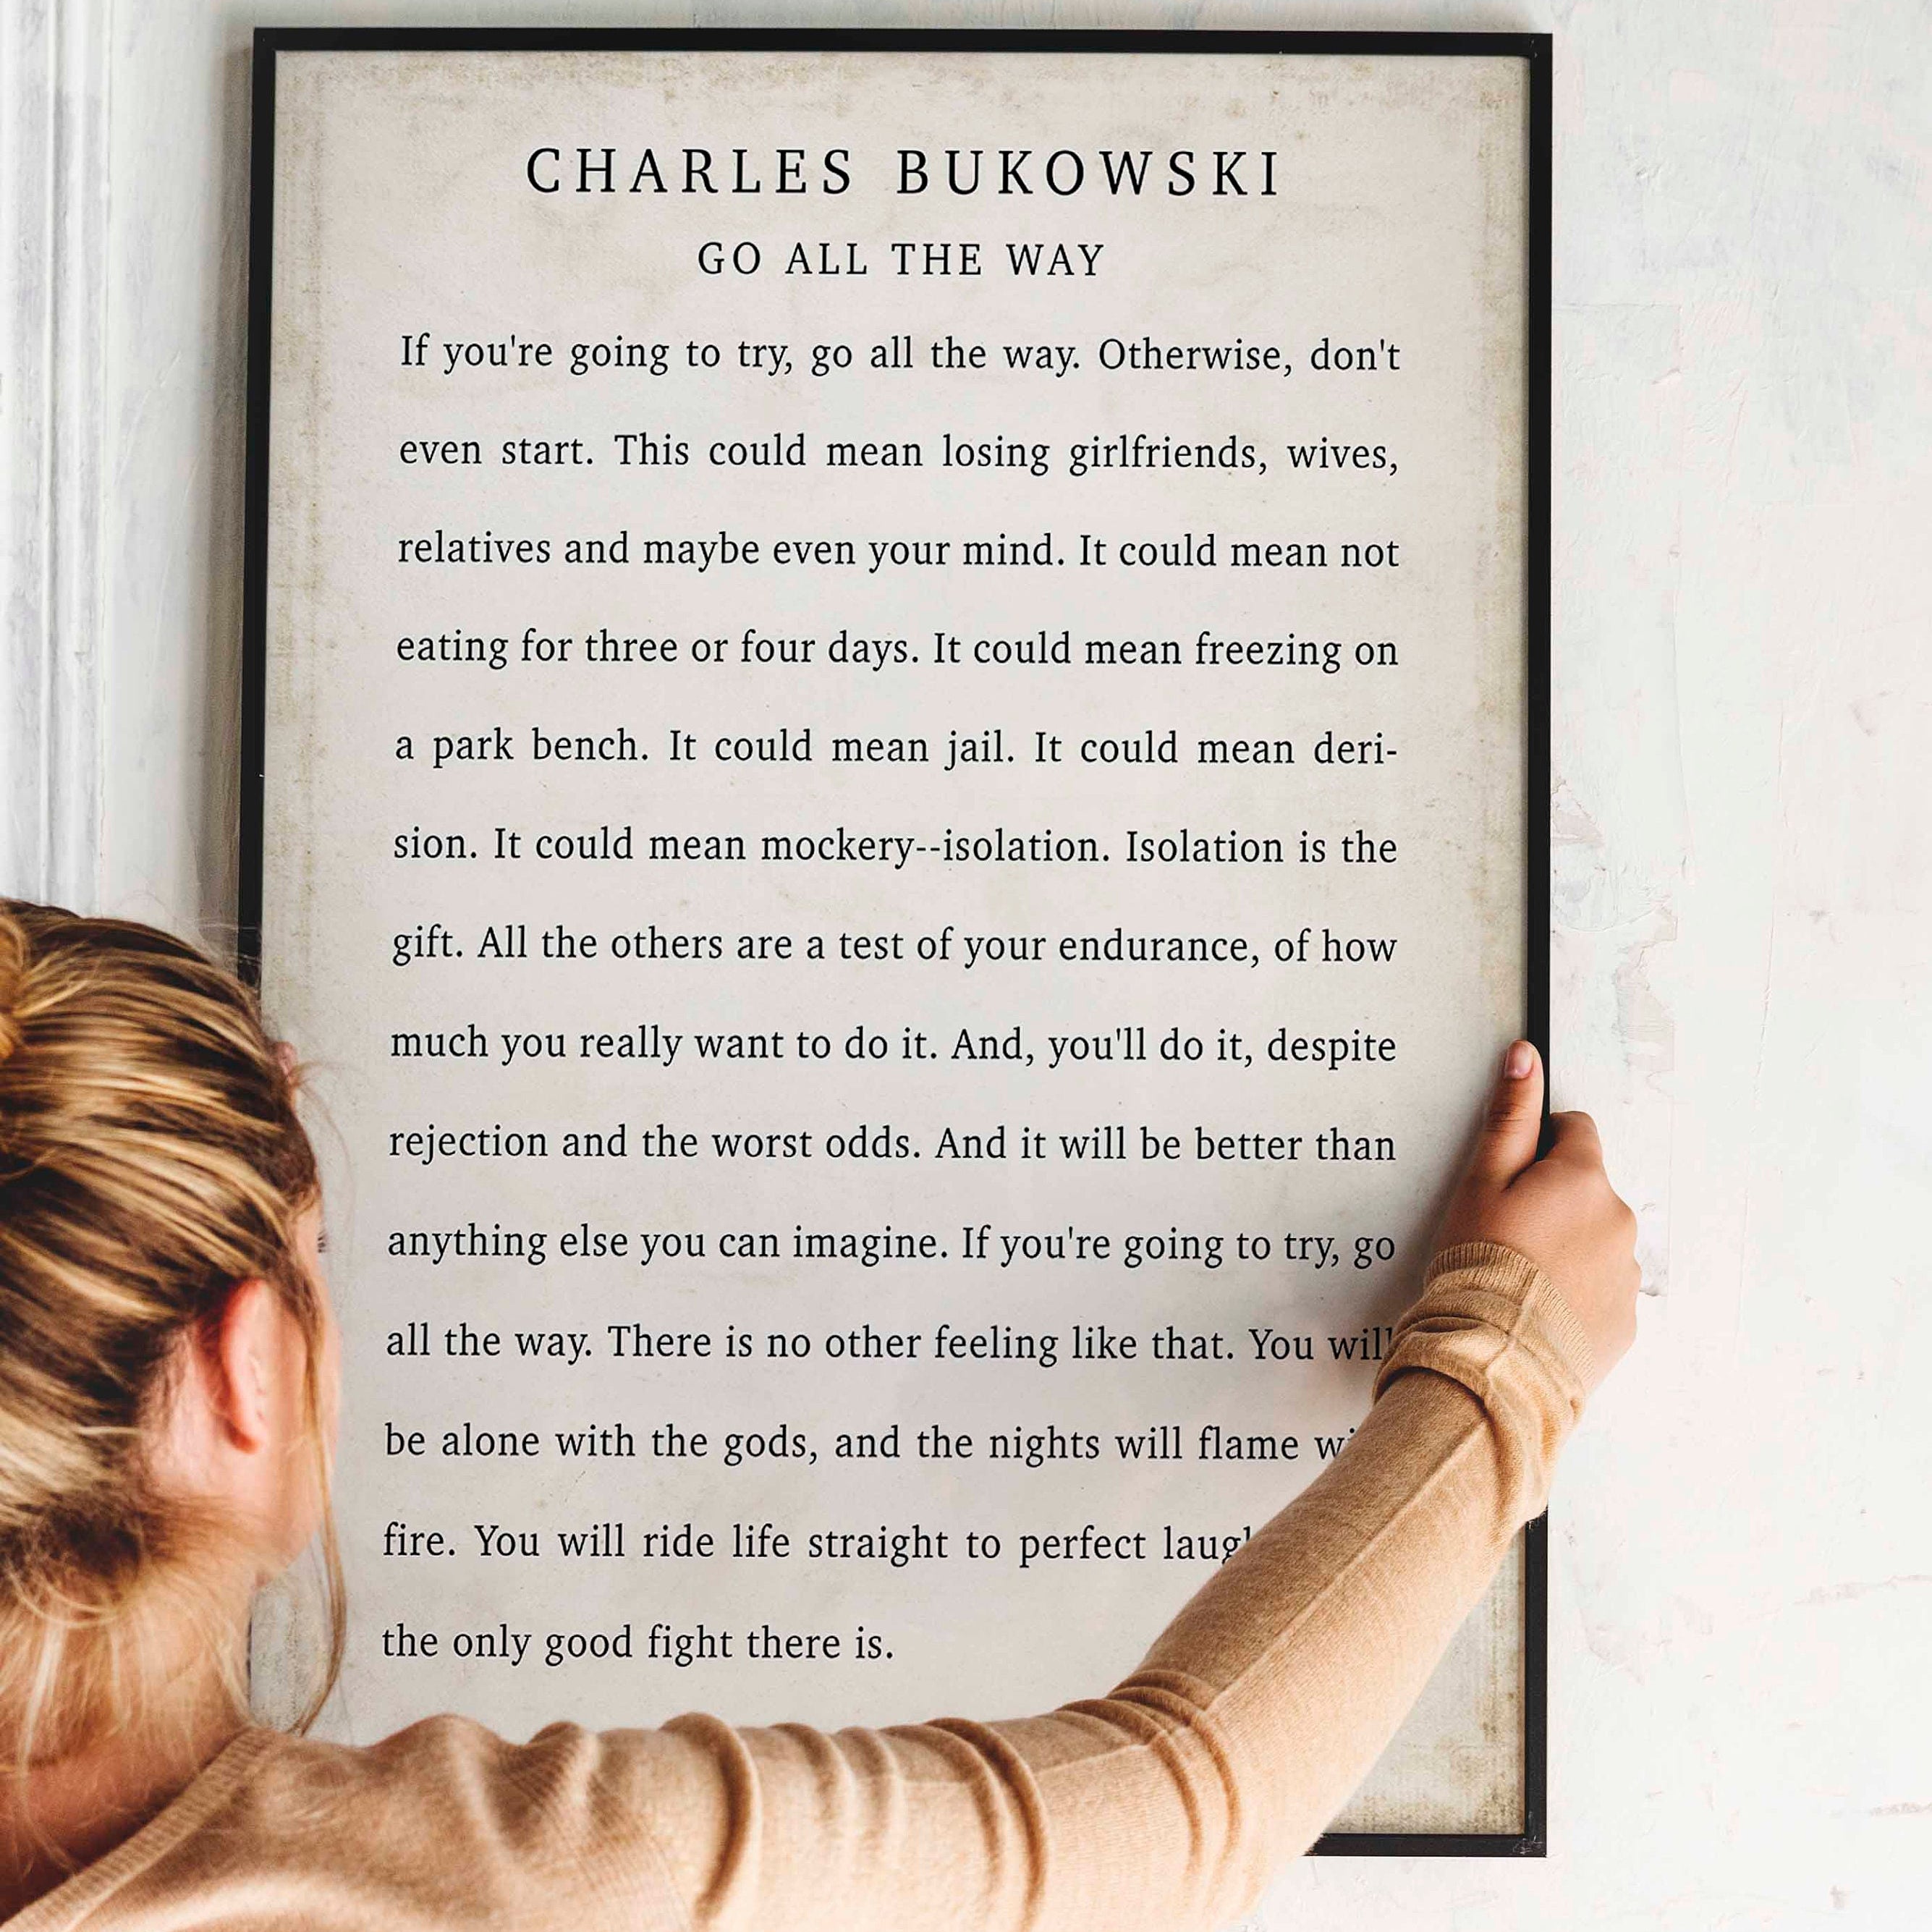 CHARLES BUKOWSKI
GO ALL THE WAY
If you're going to try, go all the way. Otherwise, don't
even start. This could mean losing girlfriends, wives,
relatives and maybe even your mind. It could mean not
eating for three or four days. It could mean freezing on
a park bench. It could mean jail. It could mean deri-
sion. It could mean mockery--isolation. Isolation is the
gift. All the others are a test of your endurance, of how
much you really want to do it. And, you'll do it, despite
rejection and the worst odds. And it will be better than
anything else you can imagine. If you're going to try, go
all the way. There is no other feeling like that. You will
be alone with the gods, and the nights will flame
fire. You will ride life straight to perfect
the only good fight there is.